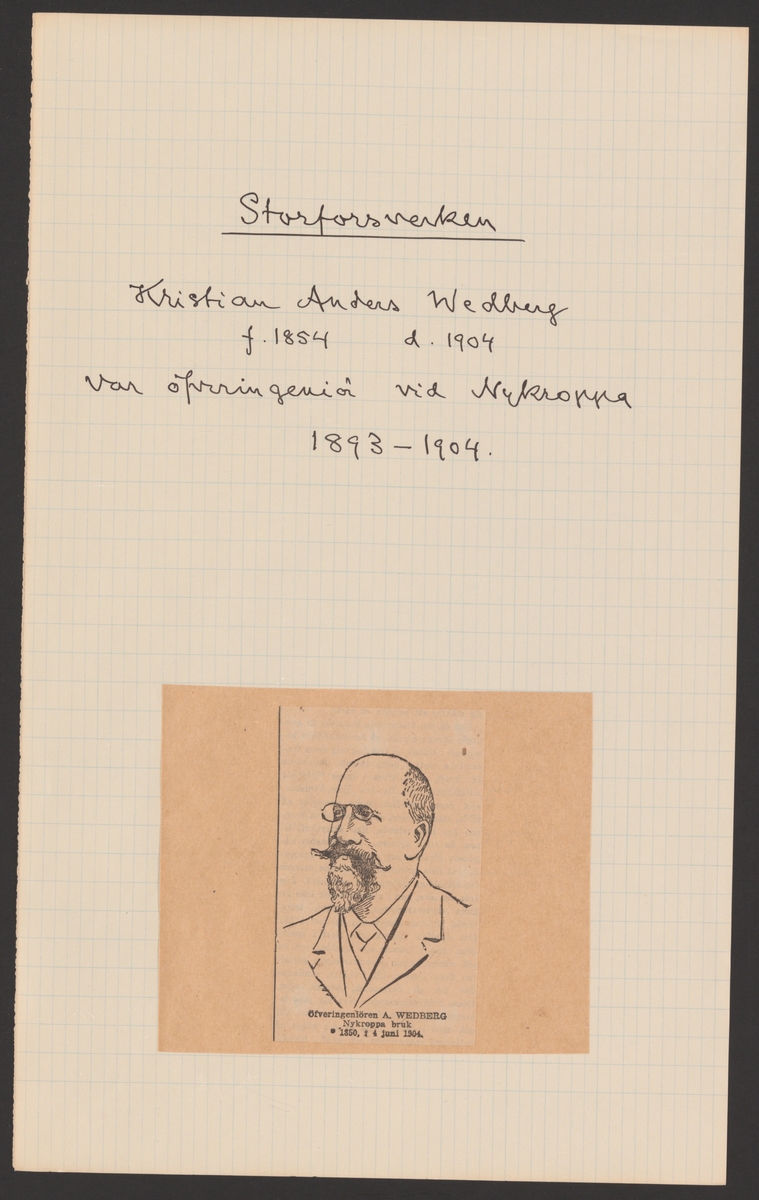 Storforsverken
Kristian Anders Wedberg
f. 1854 d. 1904
var öfveringeniör vid Nykroppa
1893 – 1904.
Öfveringeniören A. WEDBERG
Nykroppa bruk
* 1850, † 4 juni 1904.